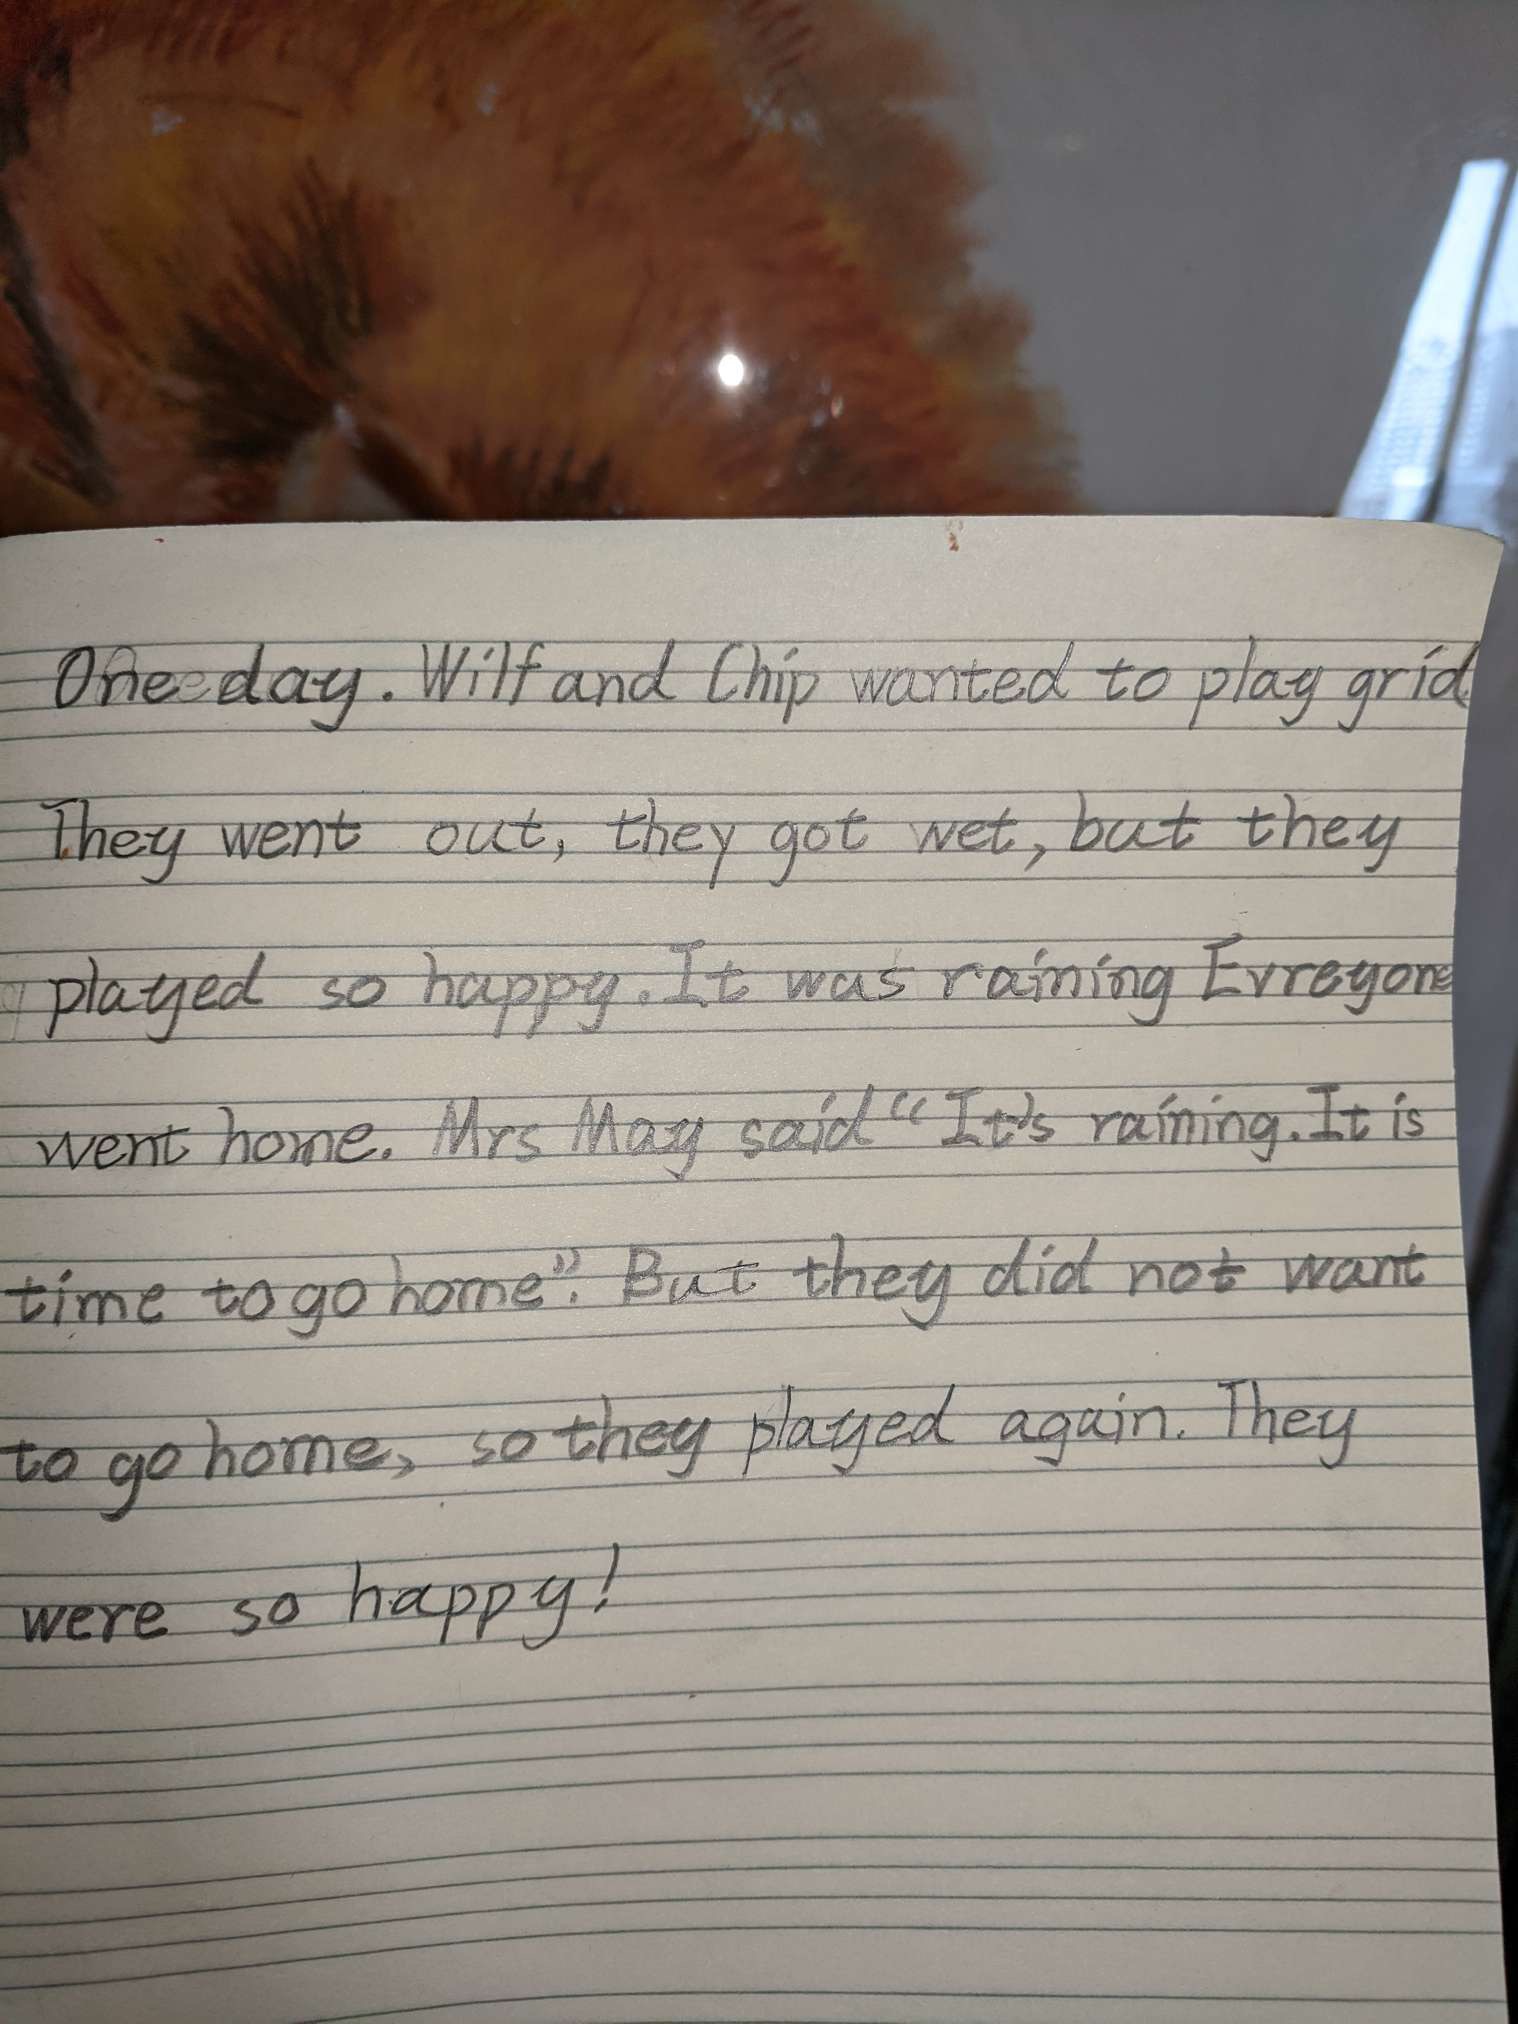 One day. Wilf and Chip wanted to play grid
They went out, they got wet, but they
played so happy. It was raining Evreyone
went home. Mrs May said “It's raining. It is
time to go home”. But they did not want
to go home, so they played again. They
were so happy!